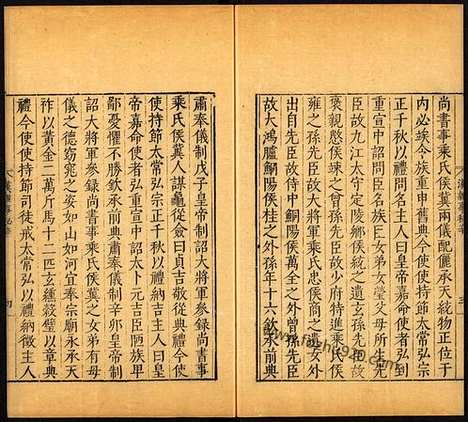 尚書事乘氏侯冀儀配儷承天統物正位于
內必竢今族重申舊典今使使持節太常弘宗
正千秋以禮問名主人曰皇帝嘉命使者弘到
重宣中詔問臣名族臣女弟女瑩父母所生先
臣故九江太守定陵鄉侯統之遺玄孫先臣故
褒親愍侯竦之曾孫先臣故少府特進乘氏侯
雍之孫先臣故大將軍乘氏忠侯商之遺女外
出自先臣故侍中鮦陽侯 曾孫先臣
故大鴻臚鮦陽侯桂之外孫年十六欽承前典
肅奉儀制戊子皇帝制詔大將軍參錄尚書事
乘氏侯冀人謀龜從僉曰貞吉敬從典禮今使
使持節太常弘宗正千秋以禮納吉主人曰皇
帝嘉命使者弘重宣中詔太卜元吉臣陋族卑
鄙憂懼不勝欽承前典肅奉儀制辛卯皇帝制
詔大將軍參錄尚書事乘氏侯冀之女弟有母
儀之德窈窕之姿如山如河宜奉宗廟永承天
祚以黃金二萬斤馬十二匹玄纁穀璧以章典
禮今使使持節司徒戒太常弘以禮納徵主人